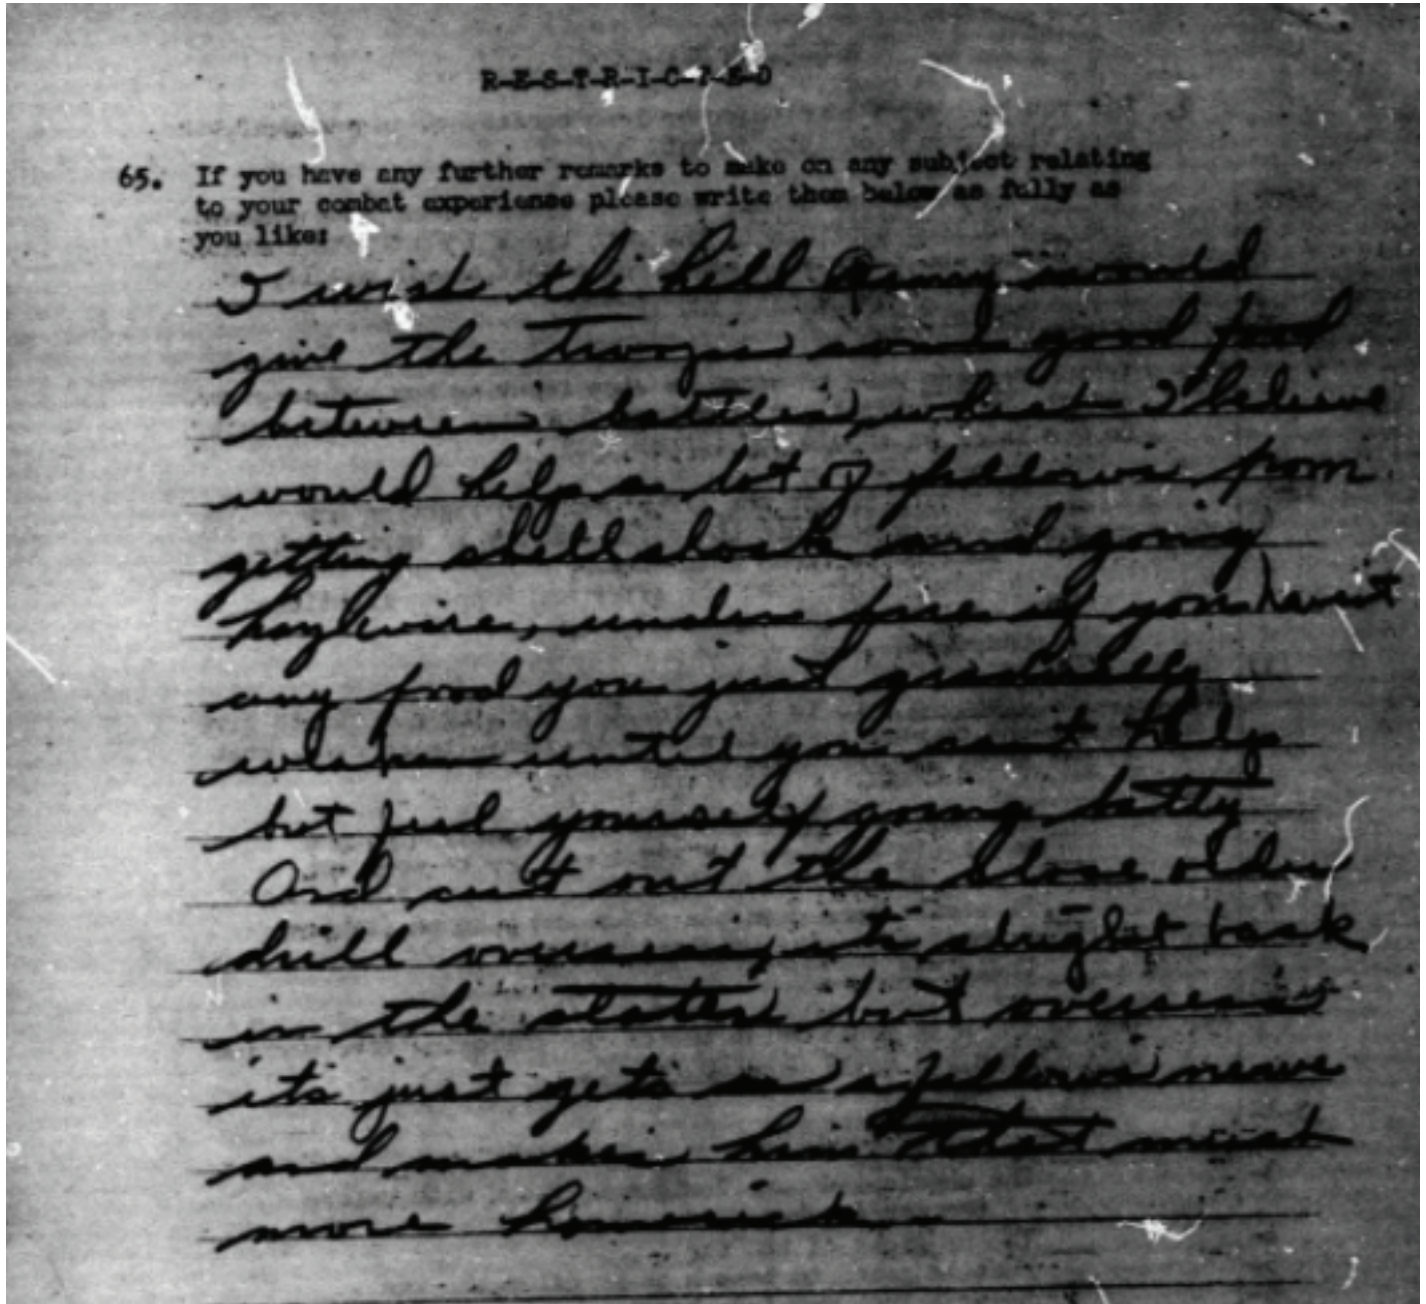 R-E-S-T-R-I-C-T-E-D
65. If you have any further remarks to make on any subject relating
to your combat experience please write them below as fully as
you like:
I wish the hell Army would
give the troops some good food
between battles, which I believe
would help a lot of fellows from
getting shellshock and going
haywire, under fire if you havent
any food you just gradually
weaken until you can't help
but feel yourself going batty
And cut out the close older
drill overseas, its alright back
in the states but overseas
its just gets a fellows nerve
and makes him that much
more homesick